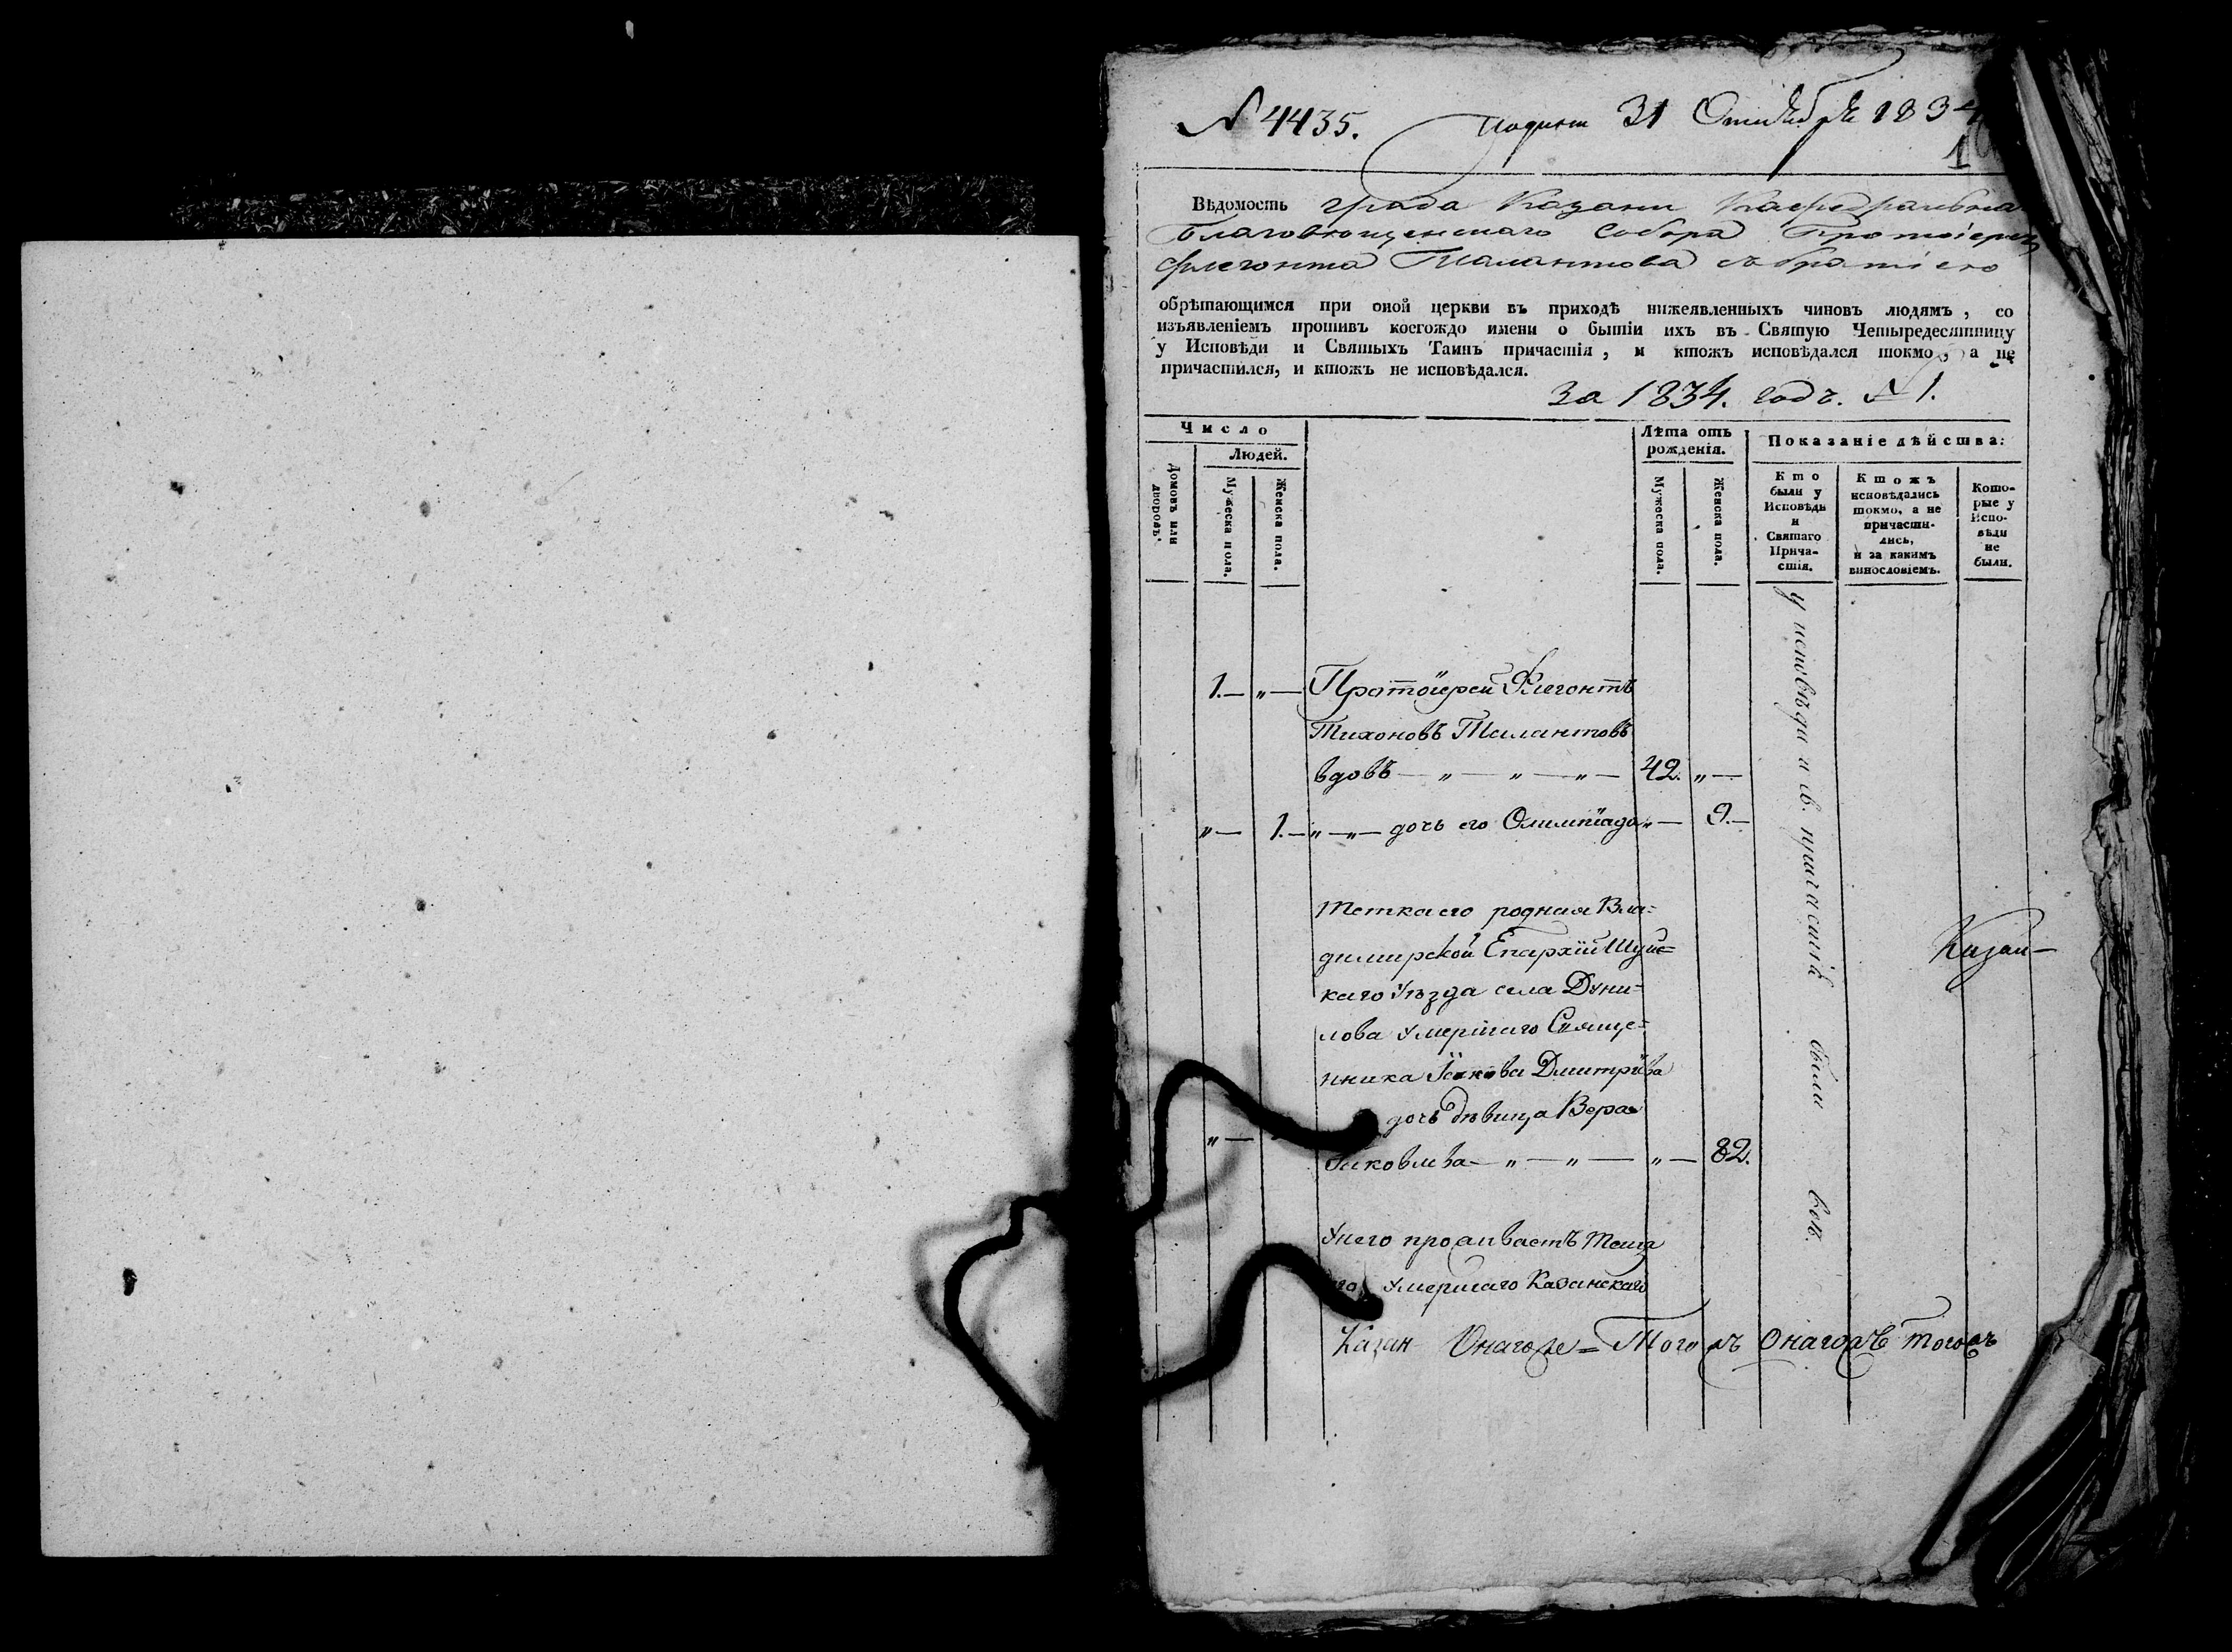 № 4435. 31 Октября 1834
1
Вѣдомость града Казани Каѳедральна
Благовѣщенскаго Собора Протоіерея
Флегонта Талантова съ братіею
обрѣтающимся при оной церкви въ приходѣ нижеявленныхъ чиновъ людямъ, со
изъявленіемъ противъ коегождо имени о бытіи ихъ въ Святую Четыредесятницу
у Исповѣди и Святыхъ Таинъ причастія, и ктожъ исповѣдался токмо, а не
причастился, и ктожъ не исповѣдался.
за 1834. годъ. № 1.
Число
Людей.
Домовъ или дворовъ.
Мужеска пола.
Женска пола.
Лѣта отъ рожденія.
Мужеска пола.
Женска пола.
Показаніе дѣйства:
Кто
были у
Исповѣди
и
Святаго
Прича-
стія.
Ктожъ
исповѣдались
токмо, а не
причасти-
лись,
и за какимъ
винословіемъ.
Кото-
рые у
Испо-
вѣди
не
были.
1.— „— Протоіерей Флегонтъ
Тихоновъ Талантовъ
вдовъ — „ — „ — „ — 42. „—
„— 1.— „—„— дочь его Олимпіада „— 9.—
Тетка его родная Вла=
димирской Епархіи Шуйс=
каго Уѣзда села Дуни=
лова умершаго Свяще=
нника Іакова Дмитріева
„— дочь дѣвица Вера
Іаковлева — „ — „ — „— 82.
У него проживаетъ теща
его умершаго Казанскаго
у исповѣди и св. причастія были всѣ.
Казан—
Казан Онагоже = Тогожъ Онагожъ тогожъ